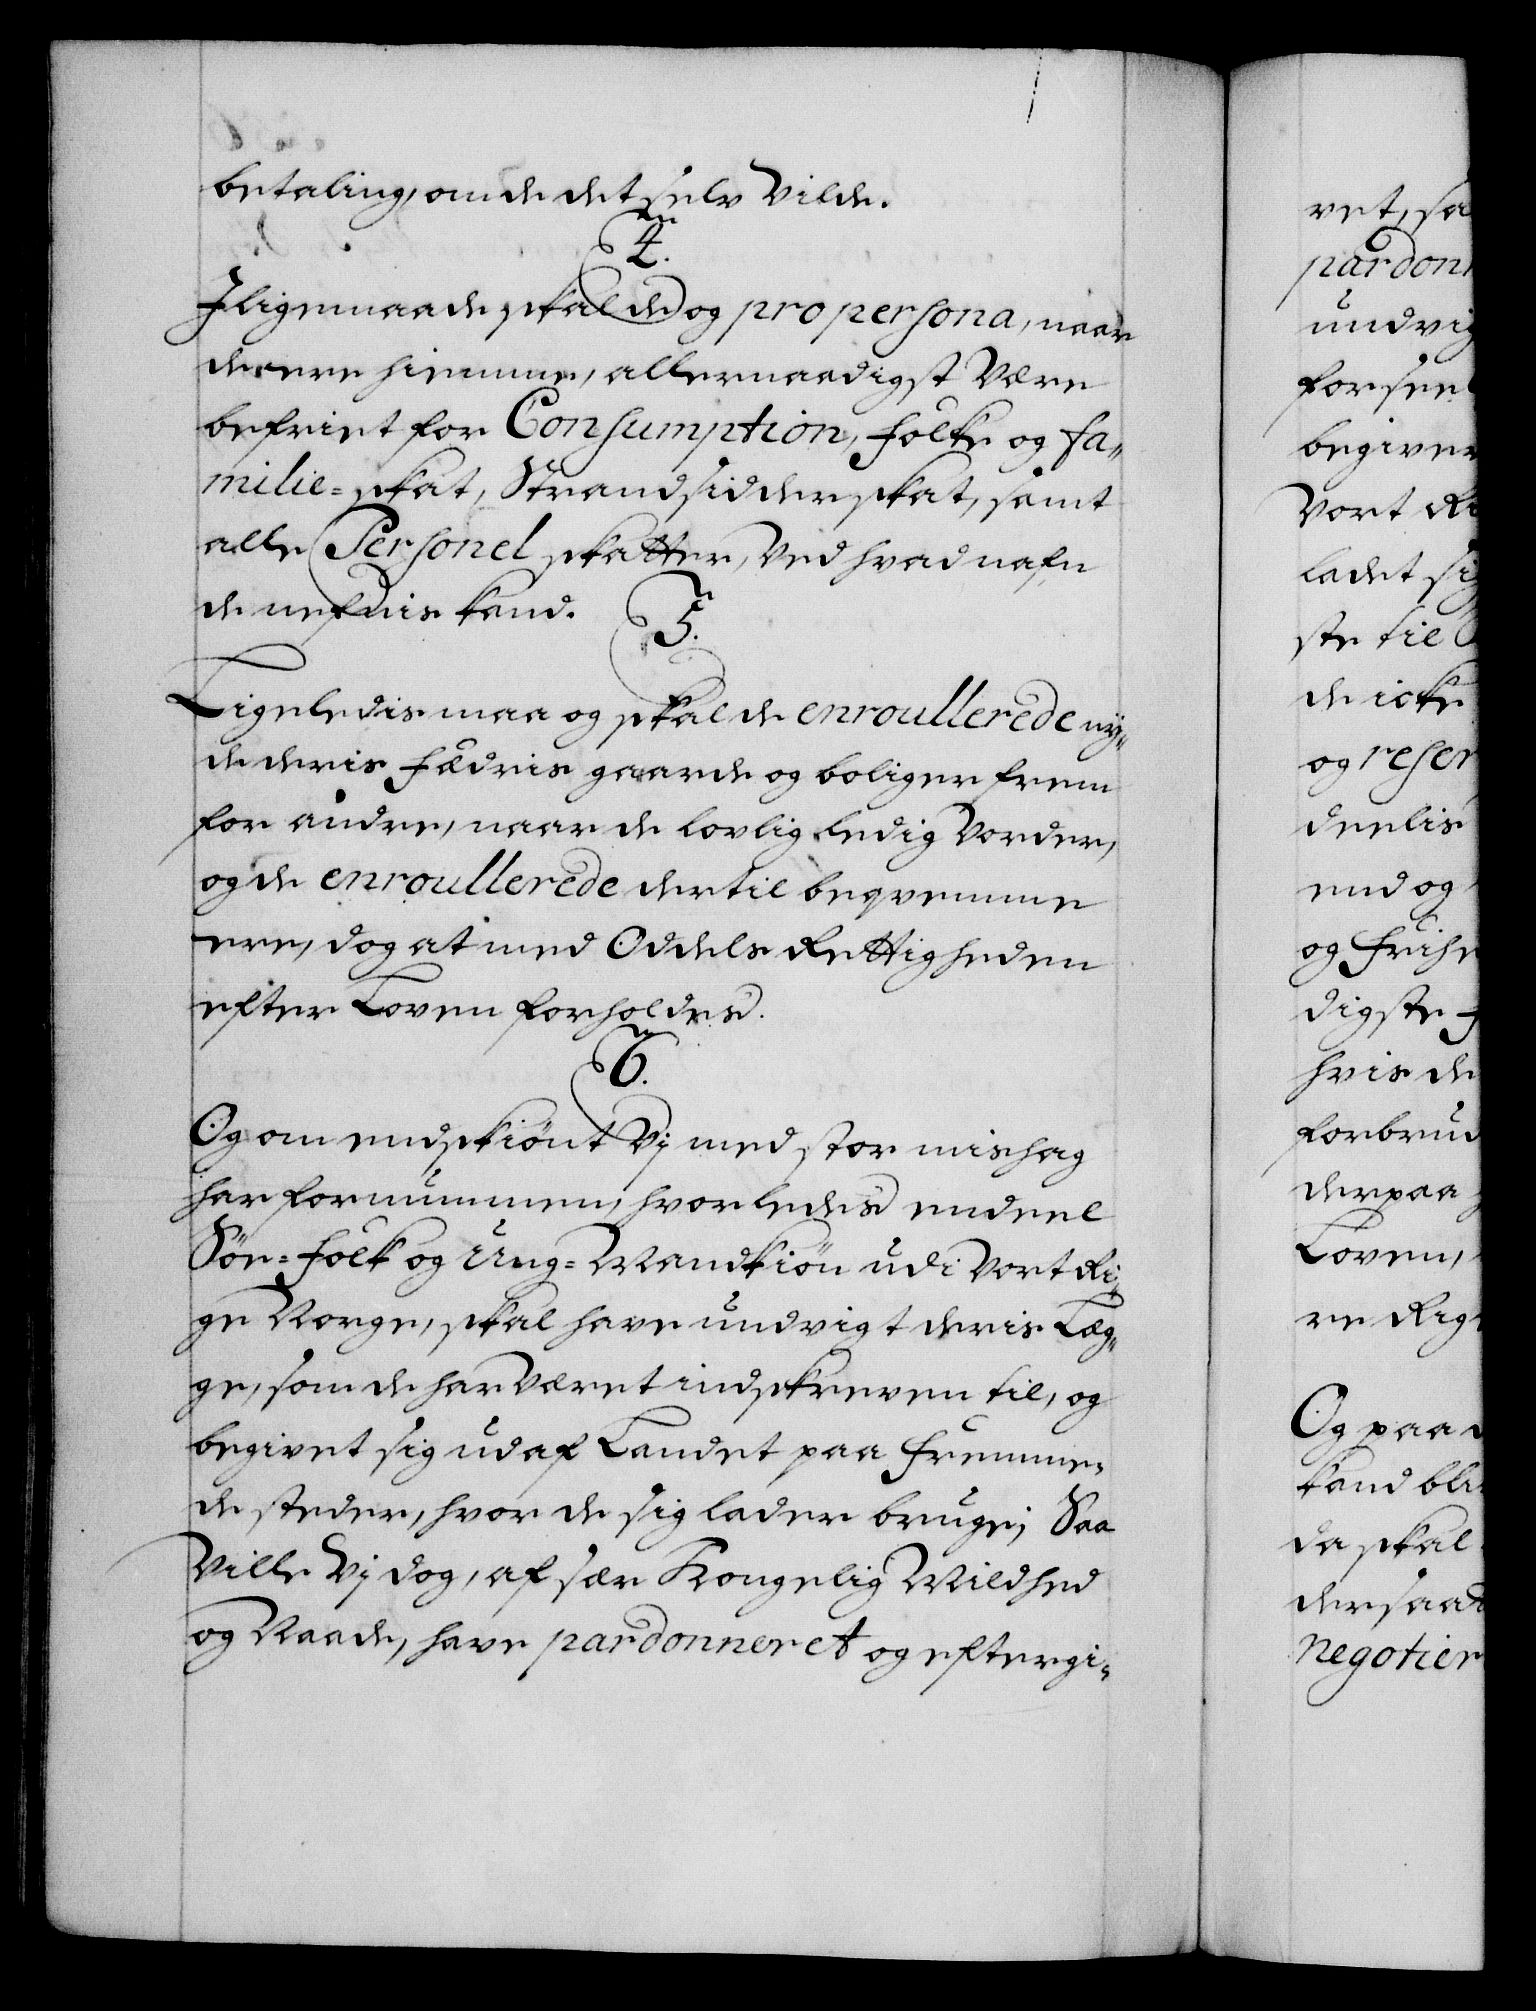 betaling, om de det selv Vilde.
4.
Jligemaade skal de og pro persona, naar
de ere hiemme, allernaadigst Være
befriet for Consumption, folke og fa„
milie=skat, Strandsidderskat, samt
alle Personel skatter, Ved hvad nafn
de nefnis kand.
5.
Ligeledis maa og skal de enroullerede ny„
de deris fædris gaarde og boliger frem
for andre, naar de lovlig ledig Vorder,
og de enroullerede dertil beqvemme
ere, dog at med Oddels Rettigheden
efter Loven forholdes.
6.
Og om endskiönt Vj med stor mishag
har fornummen, hvorledes endeel
Söe=folk og Ung=Mandkiön udi Vort Ri„
ge Norge, skal have undvigt deris Læg„
ge, som de har Været indskreven til, og
begivet sig ud af Landet paa fremme„
de steder, hvor de sig lader bruge; Saa
Ville Vj dog, af sær Kongelig Mildhed
og Naade, have pardonneret og eftergi„
ret, sa
pardonn
undvig
forseel
begiver
Vort Ri
ladet sig
ste til
de icke
og reser
deelis
end og
og Frihe
digste f
hvis de
forbrud
derpaa
Loven,
re Rig
Og paa d
kand bli
da skal
dersaad
negotier